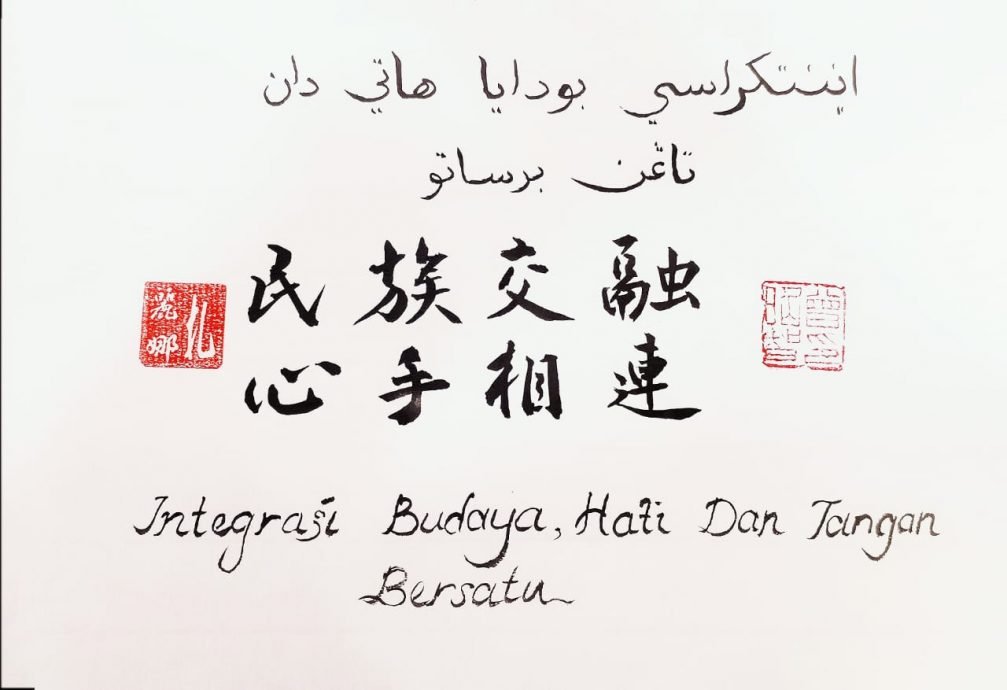 اينتكراسي بودايا هاتي دان
تاڠن برساتو
民族交融
心手相連
麗娜
Integrasi Budaya, Hati Dan Tangan
Bersatu